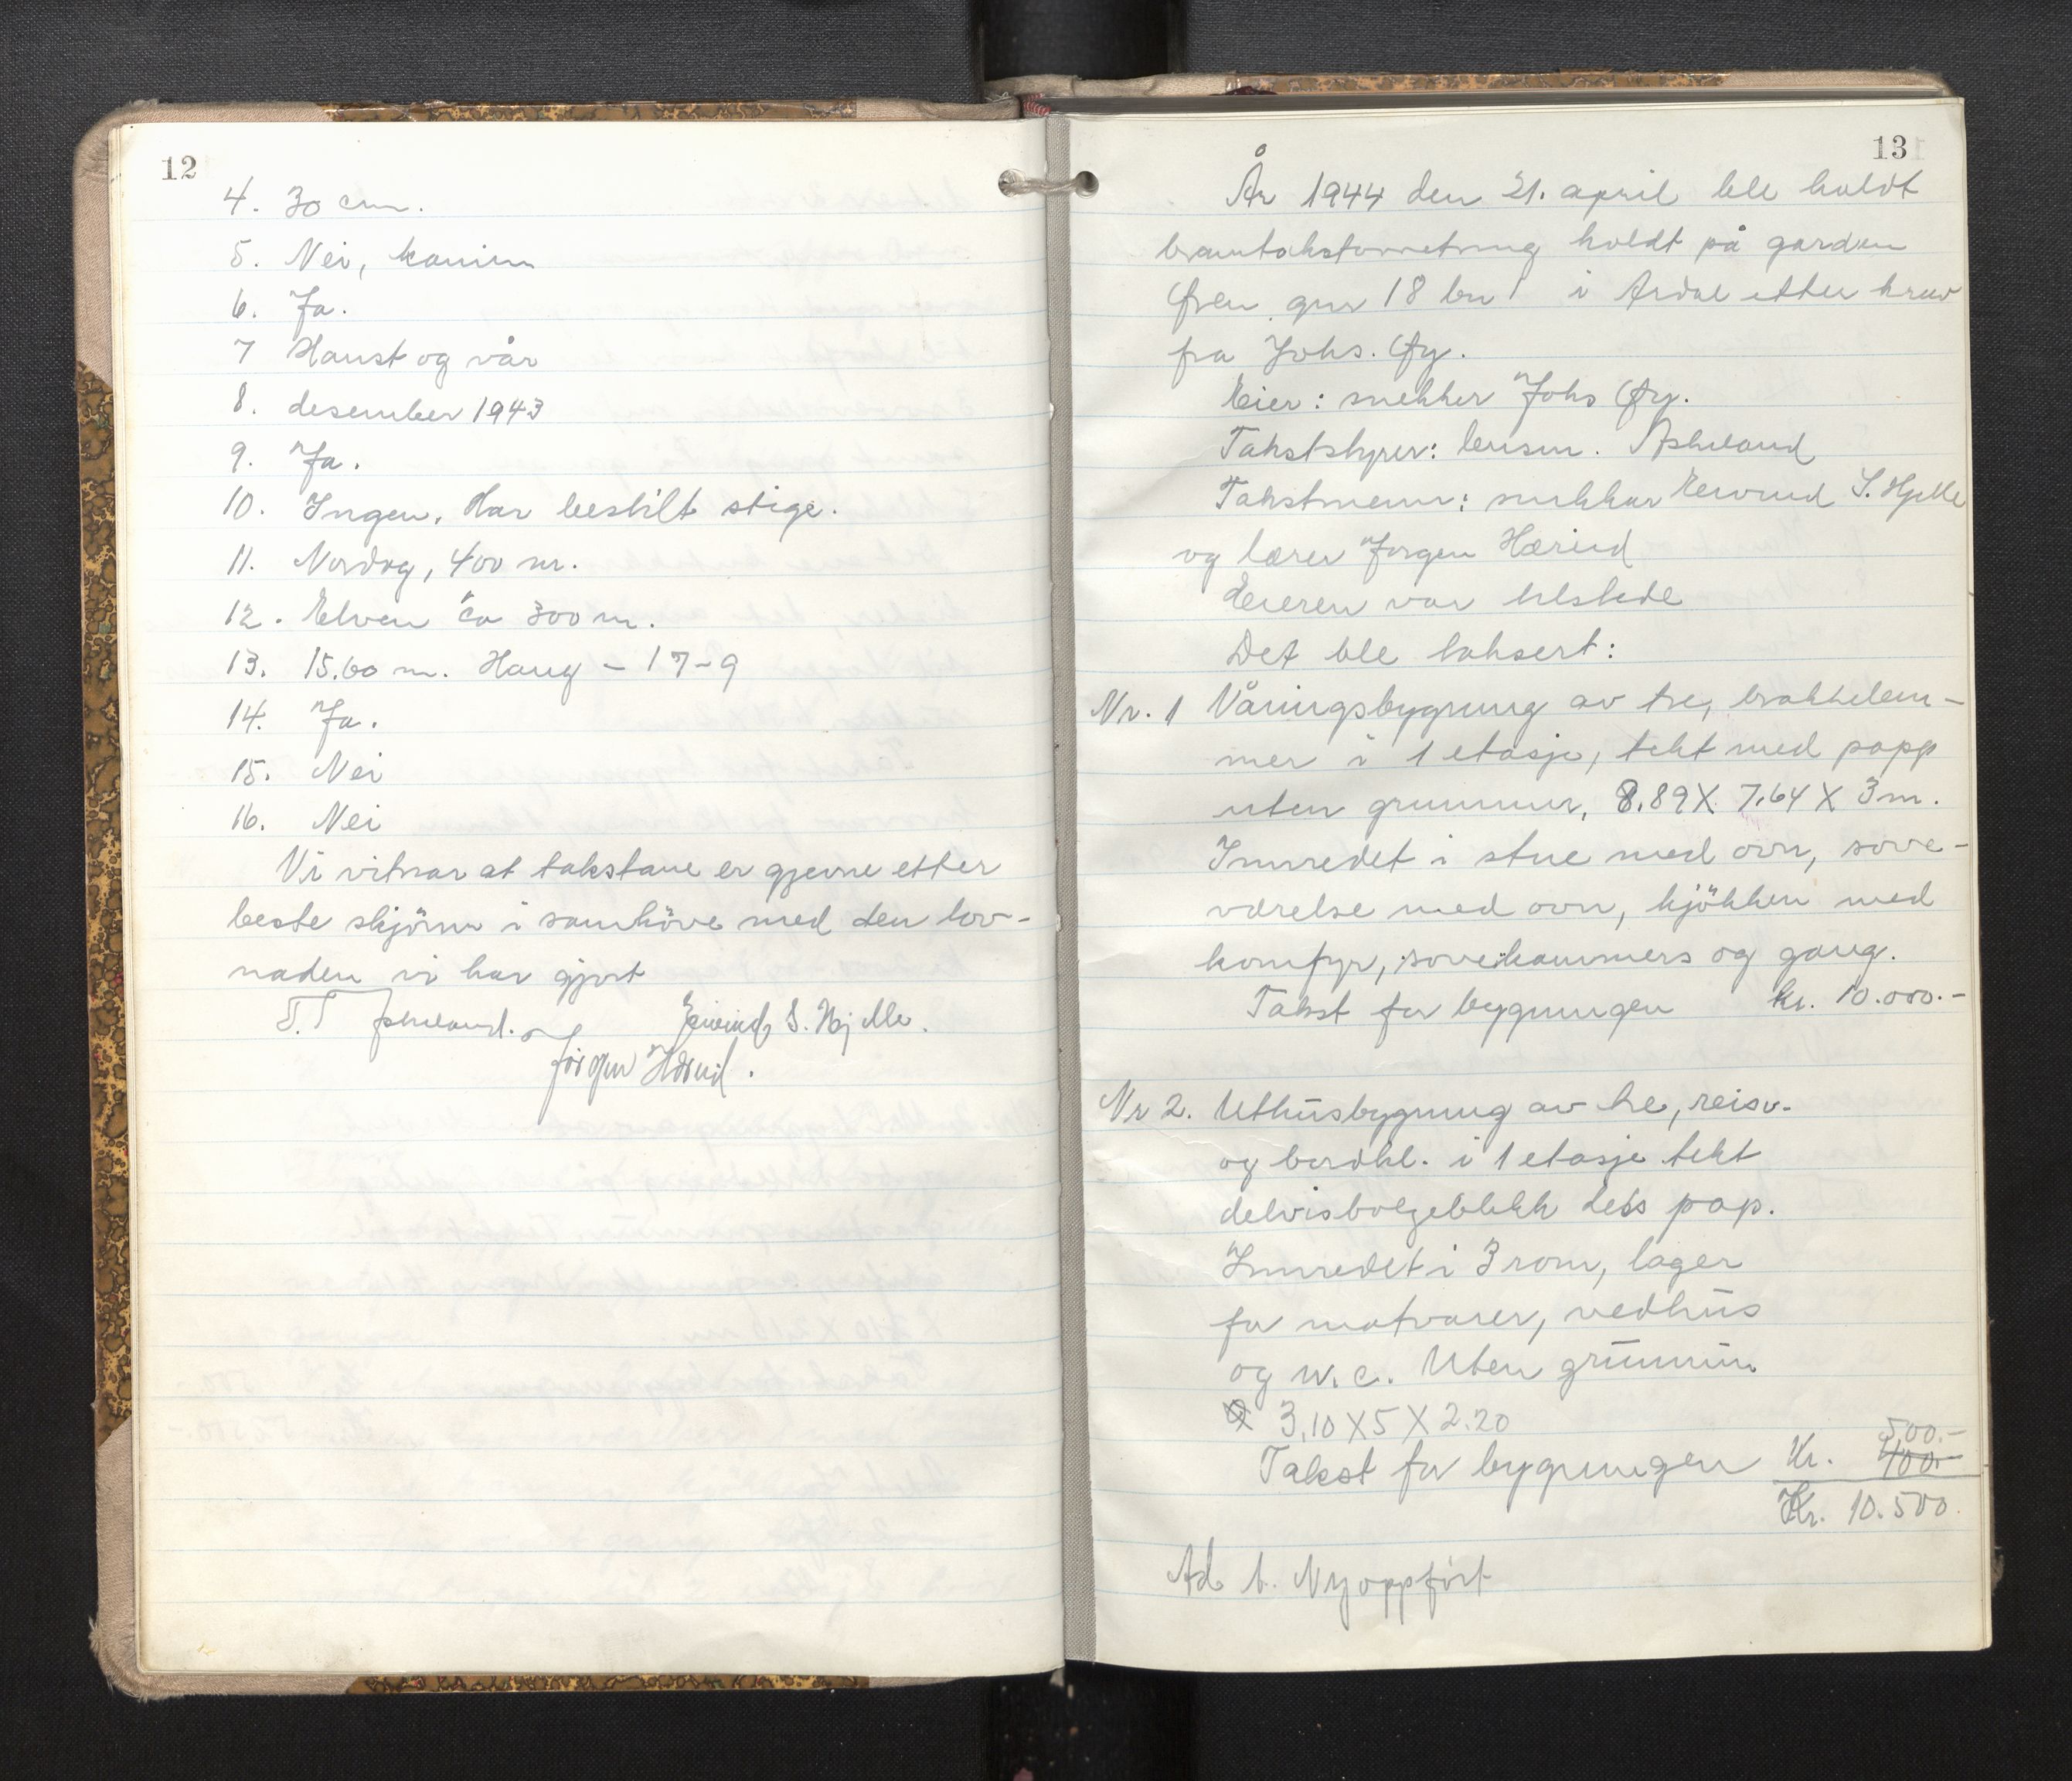 12
4. 30 cm.
5. Nei, kamin
6. Ja.
7 Haust og vår
8. desember 1943
9. Ja.
10. Ingen. Har bestilt stige.
11. Nordog, 400 m.
12. Elven ca 300 m.
13. 15.60 m. Haug - 17-9
14. Ja.
15. Nei
16. Nei
Vi vitnar at takstane er gjevne etter
beste skjönn i samhöve med den lov-
naden vi har gjort
Eivind S. Hjelle.
Jörgen Hærid.
13
År 1944 den 21. april ble holdt
branntakstforretning holdt på garden
Øren gnr 18 bnr 1 i Årdal etter krav
fra Johs. Øy.
Eier: snekker Johs Øy.
Takststyrer: lensm. Asheland
Takstmenn: snekker Eivind S. Hjelle
og lærer Jørgen Hærid
Eieren var tilstede
Det ble taksert:
Nr. 1 Våningsbygning av tre, brakkelem-
mer i 1 etasje, tekt med papp
uten grunnmur. 8.89 X 7.64 X 3 m.
Innredet i stue med ovn, sove-
værelse med ovn, kjökken med
komfyr, sovekammers og gang.
Takst for bygningen kr. 10.000.-
Nr 2. Uthusbygning av tre, reisv.
og bordkl. i 1 etasje tekt
delvis bølgeblikk dels pap.
Innredet i 3 rom, lager
for matvarer, vedhus
og w.c. Uten grunnmur
3.10 X 5 X 2.20
500.-
Takst for bygningen Kr. 400.-
Kr. 10.500.
Ad 1. Nyoppført